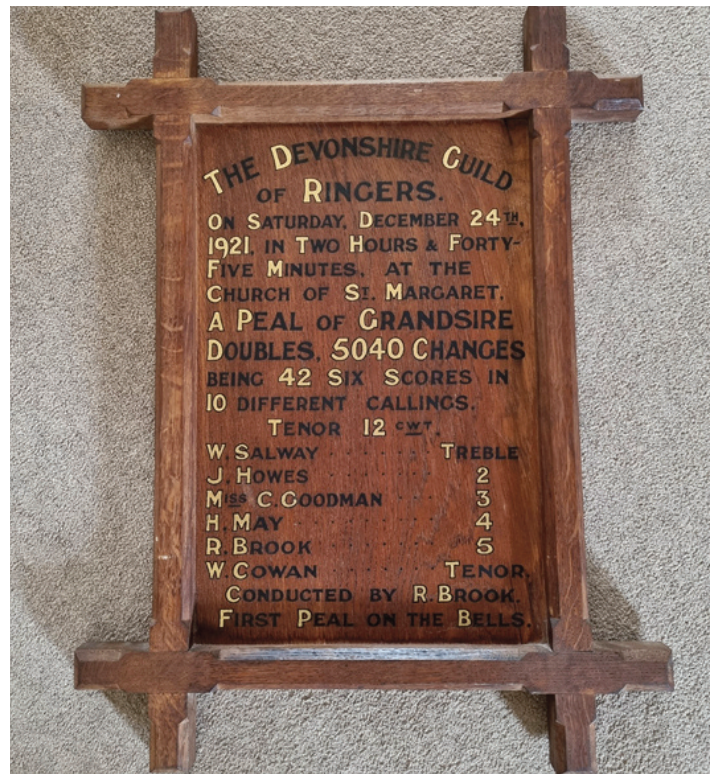 THE DEVONSHIRE GUILD
OF RINGERS.
ON SATURDAY, DECEMBER 24TH,
1921, IN TWO HOURS & FORTY-
FIVE MINUTES, AT THE
CHURCH OF ST. MARGARET,
A PEAL OF GRANDSIRE
DOUBLES, 5040 CHANGES
BEING 42 SIX SCORES IN
10 DIFFERENT CALLINGS.
TENOR 12 CWT.
W. SALWAY TREBLE
J. HOWES 2
MISS C. GOODMAN 3
H. MAY 4
R. BROOK 5
W. COWAN TENOR.
CONDUCTED BY R. BROOK.
FIRST PEAL ON THE BELLS.